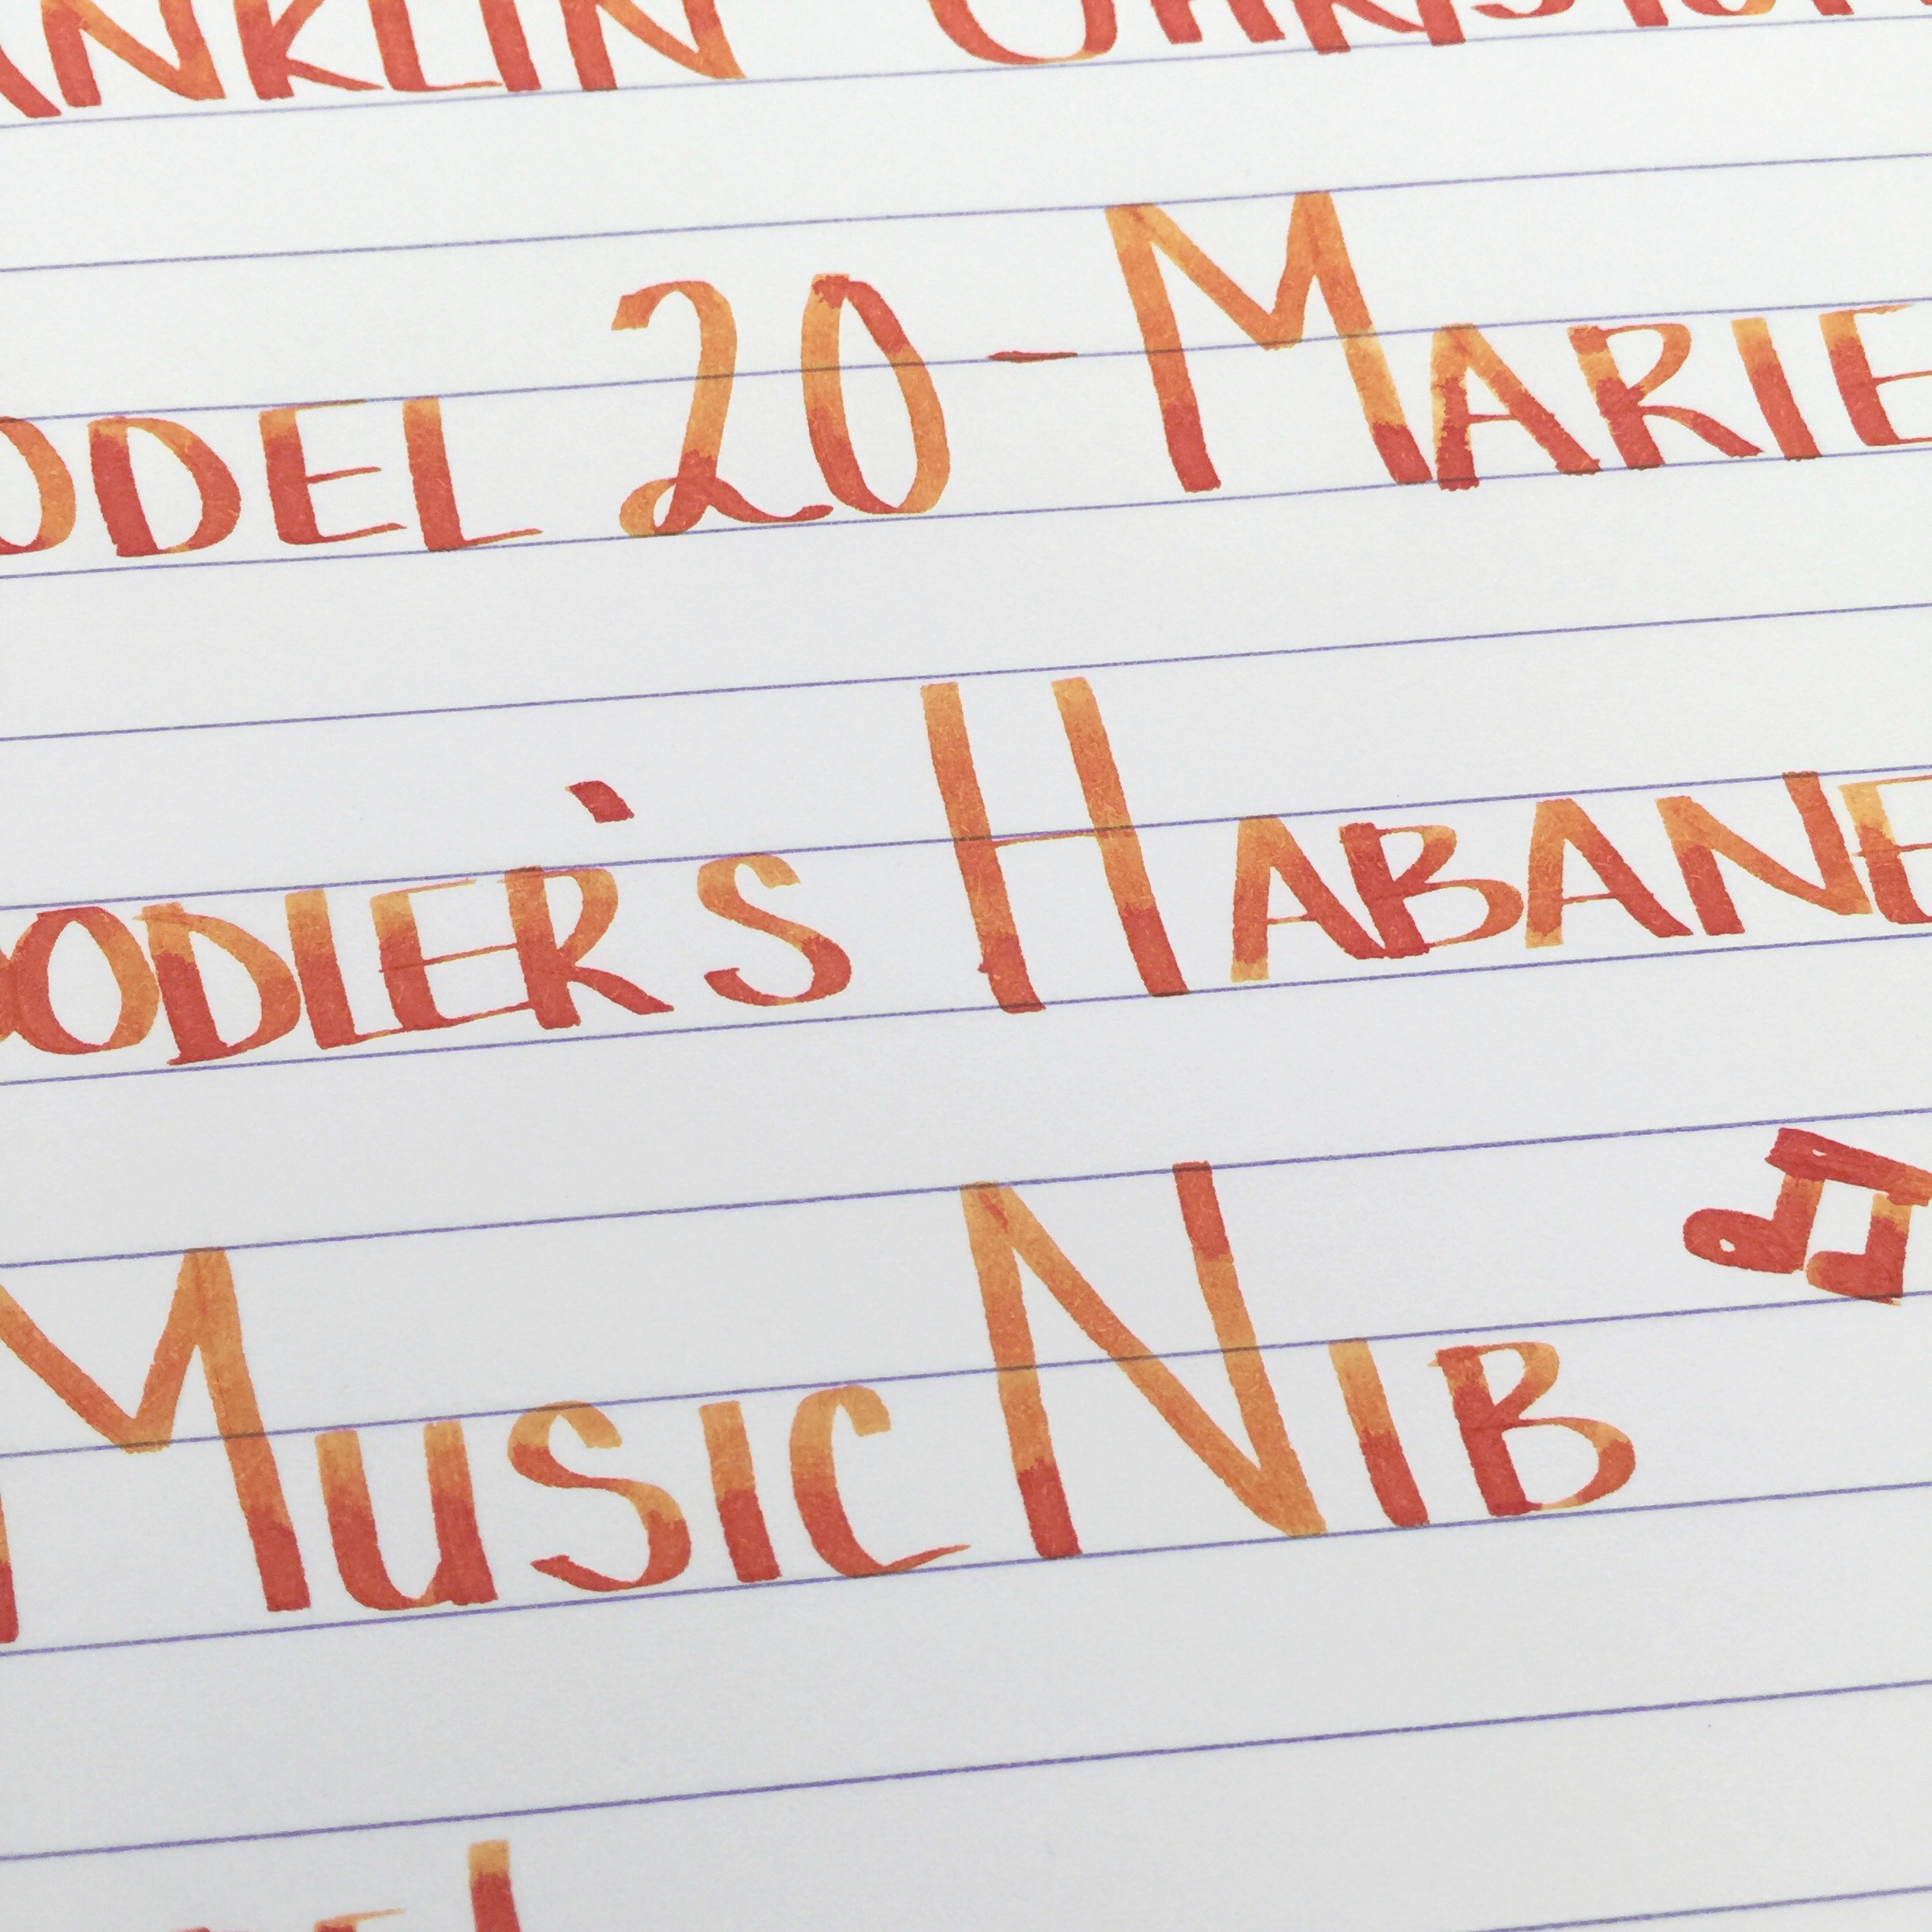 ANKLIN CHRISTOPH
ODEL 20 - MARIE
OODLER'S HABANE
MUSIC NIB